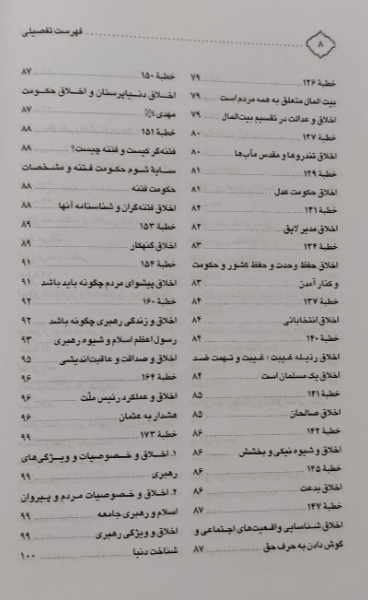 ۸ فهرست تفصیلی
خطبهٔ ۱۲۶ ۷۹
بیت‌المال متعلق به همه مردم است ۷۹
اخلاق و عدالت در تقسیم بیت‌المال ۷۹
خطبهٔ ۱۲۷ ۸۰
اخلاق تندروها و مقدس مآب‌ها ۸۰
خطبهٔ ۱۲۹ ۸۱
اخلاق حکومت عدل ۸۱
خطبهٔ ۱۳۱ ۸۲
اخلاق مدیر لایق ۸۲
خطبهٔ ۱۳۴ ۸۳
اخلاق حفظ وحدت و حفظ کشور و حکومت
و کنار آمدن ۸۳
خطبهٔ ۱۳۷ ۸۴
اخلاق انتخاباتی ۸۴
خطبهٔ ۱۴۰ ۸۴
اخلاق رذیله غیبت؛ غیبت و تهمت ضد
اخلاق یک مسلمان است ۸۴
خطبهٔ ۱۴۱ ۸۵
اخلاق صالحان ۸۵
خطبهٔ ۱۴۲ ۸۶
اخلاق و شیوه نیکی و بخشش ۸۶
خطبهٔ ۱۴۵ ۸۶
اخلاق بدعت ۸۶
خطبهٔ ۱۴۷ ۸۷
اخلاق شناسایی واقعیت‌های اجتماعی و
گوش دادن به حرف حق ۸۷
خطبهٔ ۱۵۰ ۸۷
اخلاق دنیاپرستان و اخلاق حکومت
مهدی ۸۷
خطبهٔ ۱۵۱ ۸۸
فتنه‌گر کیست و فتنه چیست؟ ۸۸
سایهٔ شوم حکومت فتنه و مشخصات
حکومت فتنه ۸۸
اخلاق فتنه‌گران و شناسنامه آنها ۸۸
خطبهٔ ۱۵۳ ۸۹
اخلاق گنهکار ۸۹
خطبهٔ ۱۵۴ ۹۱
اخلاق پیشوای مردم چگونه باید باشد ۹۱
خطبهٔ ۱۶۰ ۹۲
اخلاق و زندگی رهبری چگونه باشد ۹۲
رسول اعظم اسلام و شیوه رهبری ۹۳
اخلاق و صداقت و عاقبت‌اندیشی ۹۵
خطبهٔ ۱۶۴ ۹۶
اخلاق و عملکرد رئیس ملّت ۹۶
هشدار به عثمان ۹۶
خطبهٔ ۱۷۳ ۹۹
۱. اخلاق و خصوصیات و ویژگی‌های
رهبری ۹۹
۲. اخلاق و خصوصیات مردم و پیروان
اسلام و رهبری جامعه ۹۹
اخلاق و ویژگی رهبری ۹۹
شناخت دنیا ۱۰۰